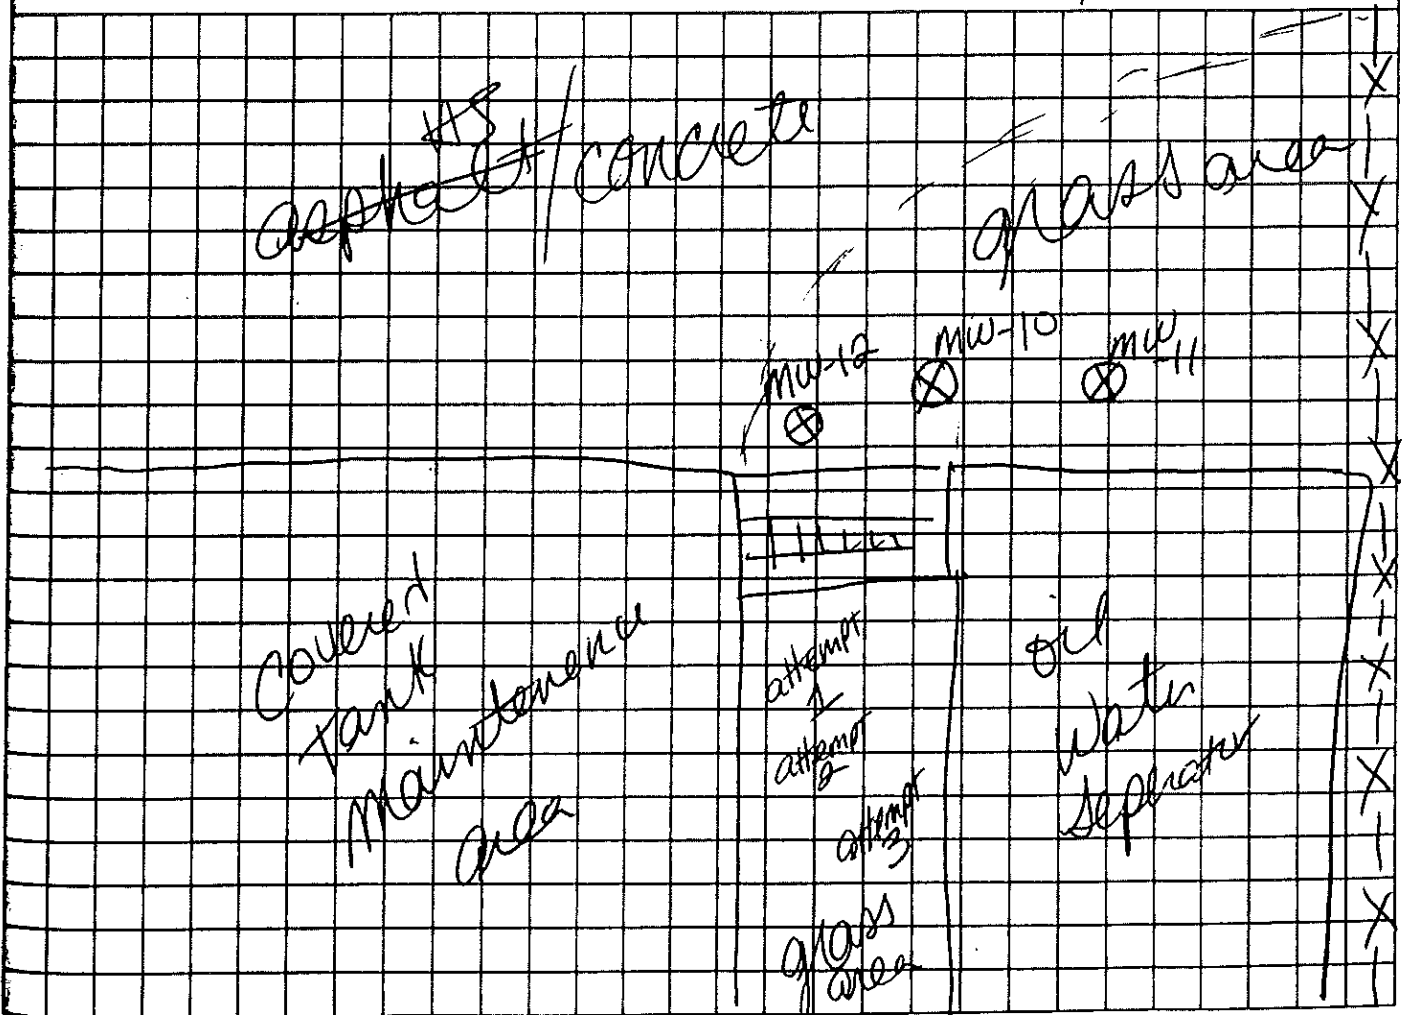 HS
asphalt/concrete
grass area
MW-12
MW-10
MW
-11
Covered
Tank
Maintenence
area
attempt
1
attempt
2
attempt
3
grass
area
oil
Water
Seperator